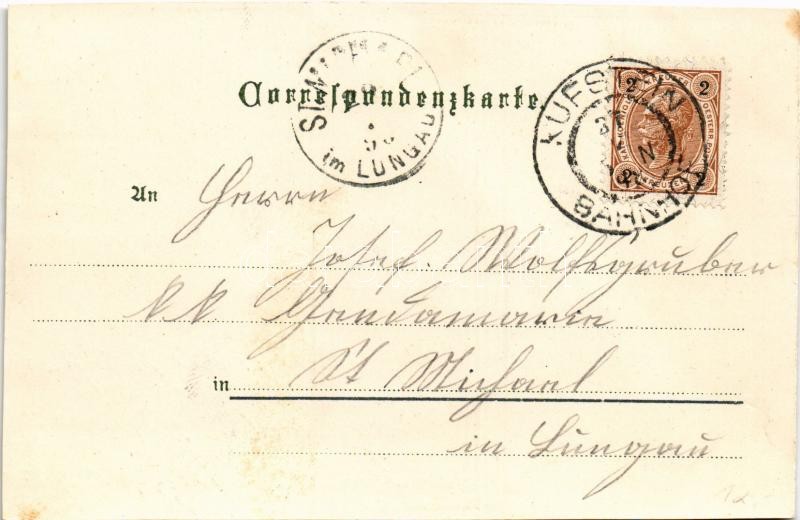 Correspondenzkarte.
ST. MICHAEL
im LUNGAU
KUFSTEIN
BAHNHOF
2 2
2 2
An Herrn
Josef Wolfsgruber
k k Gendamarie
in St Michael
in Lungau